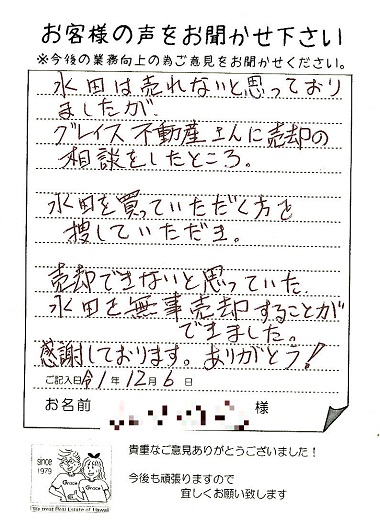 お客様の声をお聞かせ下さい
※今後の業務向上の為ご意見をお聞かせください。
水田は売れないと思っており
ましたが
グレイス不動産さんに売却の
相談をしたところ。
水田を買っていただく方を
捜していただき。
売却できないと思っていた
水田を無事売却することが
できました。
感謝しております。ありがとう!
ご記入日 令1年12月6日
お名前 様
貴重なご意見ありがとうございました!
今後も頑張りますので
宜しくお願い致します
since
1979
Grace
Grace
The most Real Estate of Hawaii